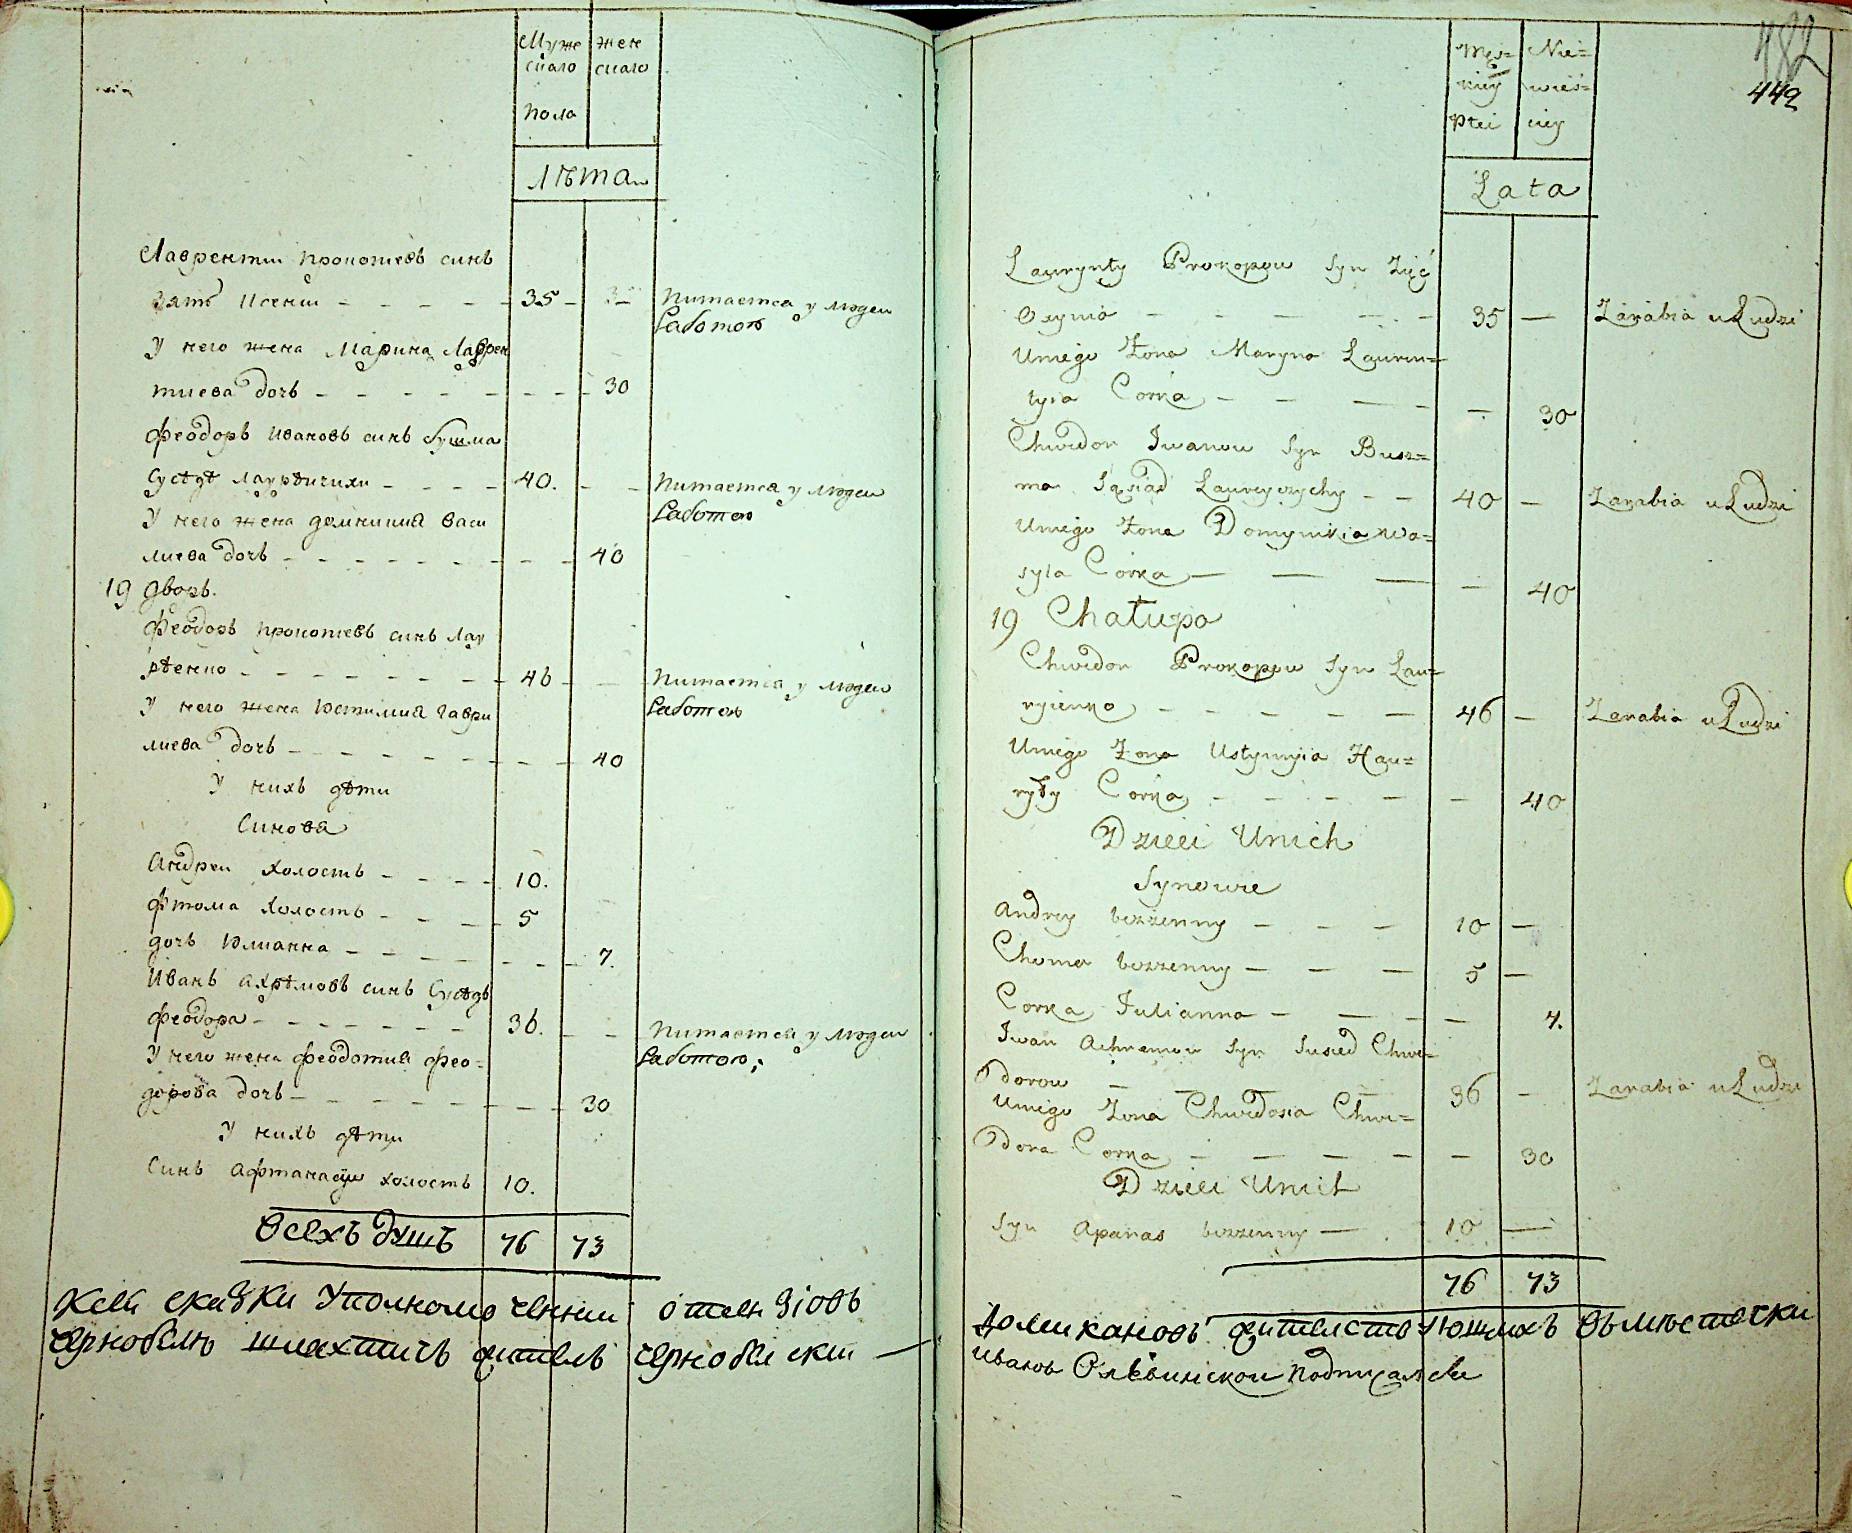 Муже жен
скаго скаго
пола
лѣта
Лаврентии прокопиевъ синъ
зять Ксении - - - - - 35 - - питается у людеи
работою
У него жена Марина Лаврен
тиева дочь - - - - - - - 30
феодоръ ивановъ синъ бушма
сусѣдъ лаурѣичихи - - - - 40. - - питается у людеи
работою
У него жена домникия васи
лиева дочь - - - - - - - - 40
19 дворъ.
феодоръ прокопиевъ синъ лау
рѣенко - - - - - - - 46 - - питается у людеи
работою
У него жена Юстимия гаври
лиева дочь - - - - - - - - 40
У нихъ дѣти
Синовя
Андреи холостъ - - - - 10.
фтома холостъ - - - - 5
дочь Юлианна - - - - - - - 7.
Иванъ Ахрѣмовъ синъ Сусѣдъ
феодора - - - - - - 36. - - питается у людеи
работою;
У него жена феодотия фео-
дорова дочь - - - - - - - - 30
У нихъ дѣти
Синъ афтанасии холостъ 10.
Всехъ душъ 76 73
Ксеи скаски Уполномоченнии
чернобылю шляхтичъ житель чернобылскии —
482
442
Męs= Nie=
kiey wieś=
Płci ciey
Lata
Laurynty Prokopow Syn Zięć
Oxynia - - - - - 35 — Zarabia u Ludzi
Uniego Żona Maryna Lauren=
tyia Corka - - — - - 30
Chwedor Iwanow Syn Busz=
ma Sąsiad Laureyczychy - - 40 — Zarabia u Ludzi
Uniego Żona Domynikia Wa=
syla Corka — — — - 40
19 Chałupa
Chwedor Prokopow Syn Lau=
ryienko - - - - - 46 — Zarabia u Ludzi
Uniego Żona Ustymyia Hau=
ryły Corka - - - - - 40
Dzieci Unich
Synowie
Andrey bezzenny - - - 10 —
Choma bezzenny - - - 5 —
Corka Julianna - - - - 7.
Iwan Achremow Syn Susied Chwe=
dorow - — — 36 - Zarabia u Ludzi
Uniego Żona Chwedosia Chwe=
dora Corka - - - - - - 30
Dzieci Unich
Syn Apanas bezzenny — 10 —
76 73
жителствующихъ въ местечки
иванъ подписался